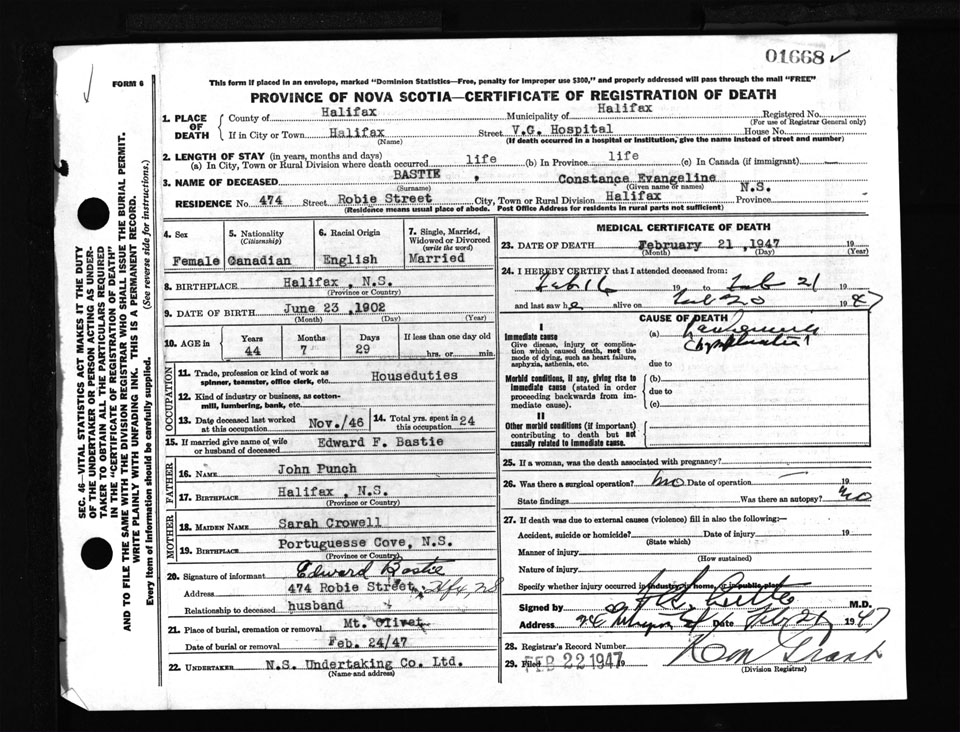 01668
FORM 6
This form if placed in an envelope, marked "Dominion Statistics—Free, penalty for improper use $300," and properly addressed will pass through the mail "FREE"
PROVINCE OF NOVA SCOTIA—CERTIFICATE OF REGISTRATION OF DEATH
1. PLACE OF DEATH
County of Halifax Municipality of Halifax Registered No.
(For use of Registrar General only)
If in City or Town Halifax Street V.G. Hospital House No.
(Name) (If death occurred in a hospital or institution, give the name instead of street and number)
2. LENGTH OF STAY (in years, months and days)
(a) In City, Town or Rural Division where death occurred life (b) In Province life (c) In Canada (if immigrant)
3. NAME OF DECEASED BASTIE , Constance Evangeline
(Surname) (Given name or names)
RESIDENCE No. 474 Street Robie Street City, Town or Rural Division Halifax Province N.S.
(Residence means usual place of abode. Post Office Address for residents in rural parts not sufficient)
SEC. 46—VITAL STATISTICS ACT MAKES IT THE DUTY
OF THE UNDERTAKER OR PERSON ACTING AS UNDER-
TAKER TO OBTAIN ALL THE PARTICULARS REQUIRED
IN THE "CERTIFICATE OF REGISTRATION OF DEATH"
AND TO FILE THE SAME WITH THE DIVISION REGISTRAR WHO SHALL ISSUE THE BURIAL PERMIT.
WRITE PLAINLY WITH UNFADING INK. THIS IS A PERMANENT RECORD.
Every item of information should be carefully supplied. (See reverse side for instructions.)
4. Sex
Female
5. Nationality
(Citizenship)
Canadian
6. Racial Origin
English
7. Single, Married,
Widowed or Divorced
(write the word)
Married
8. BIRTHPLACE Halifax, N.S.
(Province or Country)
9. DATE OF BIRTH June 23 ,1902
(Month) (Day) (Year)
10. AGE in
Years Months Days If less than one day old
44 7 29 hrs. or min.
OCCUPATION
11. Trade, profession or kind of work as
spinner, teamster, office clerk, etc. Houseduties
12. Kind of industry or business, as cotton-
mill, lumbering, bank, etc.
13. Date deceased last worked
at this occupation Nov./46
14. Total yrs. spent in
this occupation 24
15. If married give name of wife
or husband of deceased Edward F. Bastie
FATHER
16. NAME John Punch
17. BIRTHPLACE Halifax, N.S.
(Province or Country)
MOTHER
18. MAIDEN NAME Sarah Crowell
19. BIRTHPLACE Portuguesse Cove, N.S.
(Province or Country)
20. Signature of informant Edward Bastie
Address 474 Robie Street, Hfx, NS
Relationship to deceased husband
21. Place of burial, cremation or removal Mt. Olivet
Date of burial or removal Feb. 24/47
22. UNDERTAKER N.S. Undertaking Co. Ltd.
(Name and address)
MEDICAL CERTIFICATE OF DEATH
23. DATE OF DEATH February 21 ,1947 19
(Month) (Day) (Year)
24. I HEREBY CERTIFY that I attended deceased from:
Feb 16 19 to Feb 21
and last saw he alive on Feb 20 1947
CAUSE OF DEATH
I
Immediate cause (a)
Give disease, injury or complica-
tion which caused death, not the
mode of dying, such as heart failure,
asphyxia, asthenia, etc.
due to
Morbid conditions, if any, giving rise to
immediate cause (stated in order
proceeding backwards from im-
mediate cause).
(b)
due to
(c)
II
Other morbid conditions (if important)
contributing to death but not
causally related to immediate cause.
25. If a woman, was the death associated with pregnancy?
26. Was there a surgical operation? no Date of operation 19
State findings Was there an autopsy? no
27. If death was due to external causes (violence) fill in also the following:—
Accident, suicide or homicide? Date of injury 19
(State which)
Manner of injury
(How sustained)
Nature of injury
Specify whether injury occurred in industry, in home, or in public place
Signed by M.D.
Address Date Feb 21 1947
28. Registrar's Record Number
29. Filed FEB 22 1947 19
(Division Registrar)